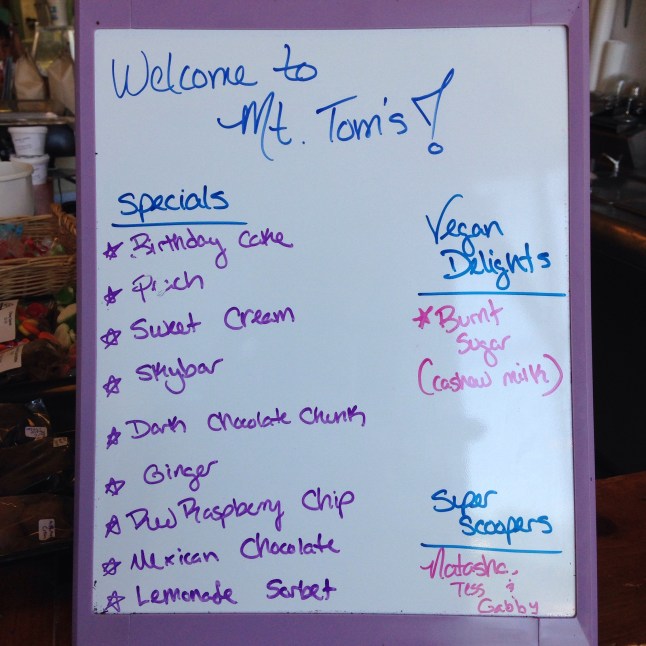 Welcome to
Mt. Tom's!
Specials
Birthday Cake
Sweet Cream
Skybar
Dark Chocolate Chunk
Ginger
Raspberry Chip
Mexican Chocolate
Lemonade Sorbet
Vegan
Delights
Burnt
Sugar
(cashew milk)
Super
Scoopers
Natasha,
Tess &
Gabby